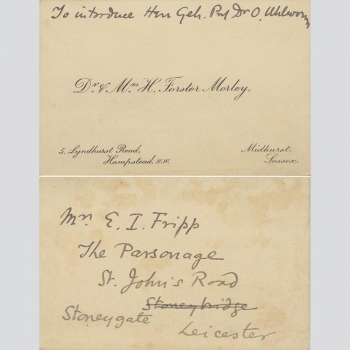 To introduce Herr Geh. Prof Dr O. Uhlworm
Dr. & Mrs H. Forster Morley.
5, Lyndhurst Road,
Hampstead. N.W.
Midhurst.
Sussex.
Mr. E. I. Fripp
The Parsonage
St. John's Road
Stoneybridge
Stoneygate
Leicester